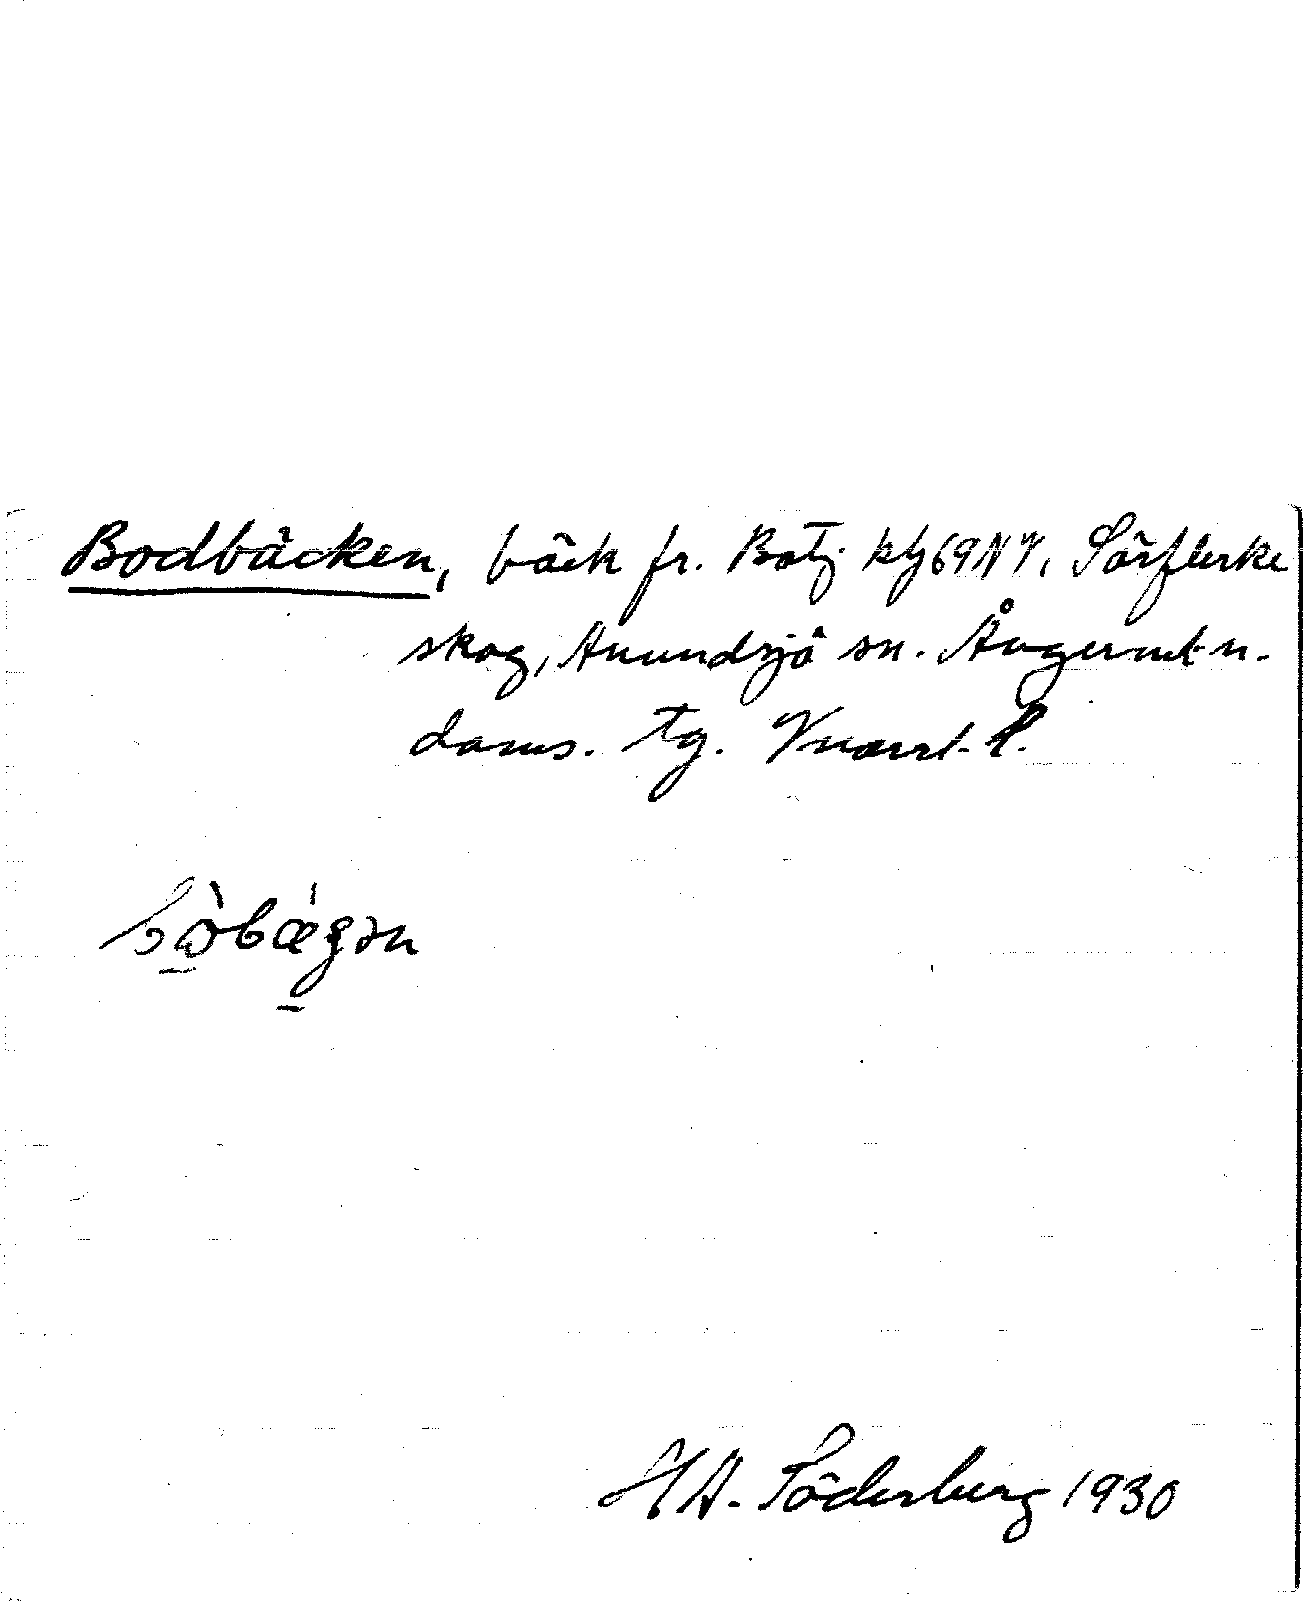 Bodbäcken, bäck fr. Botj. kbl 69 NV, Sörflerke
skog, Anundsjö sn. Ångerml. n.
doms. Tg. Vnorrl. l.
bòbǽgən
HA. Söderberg 1930